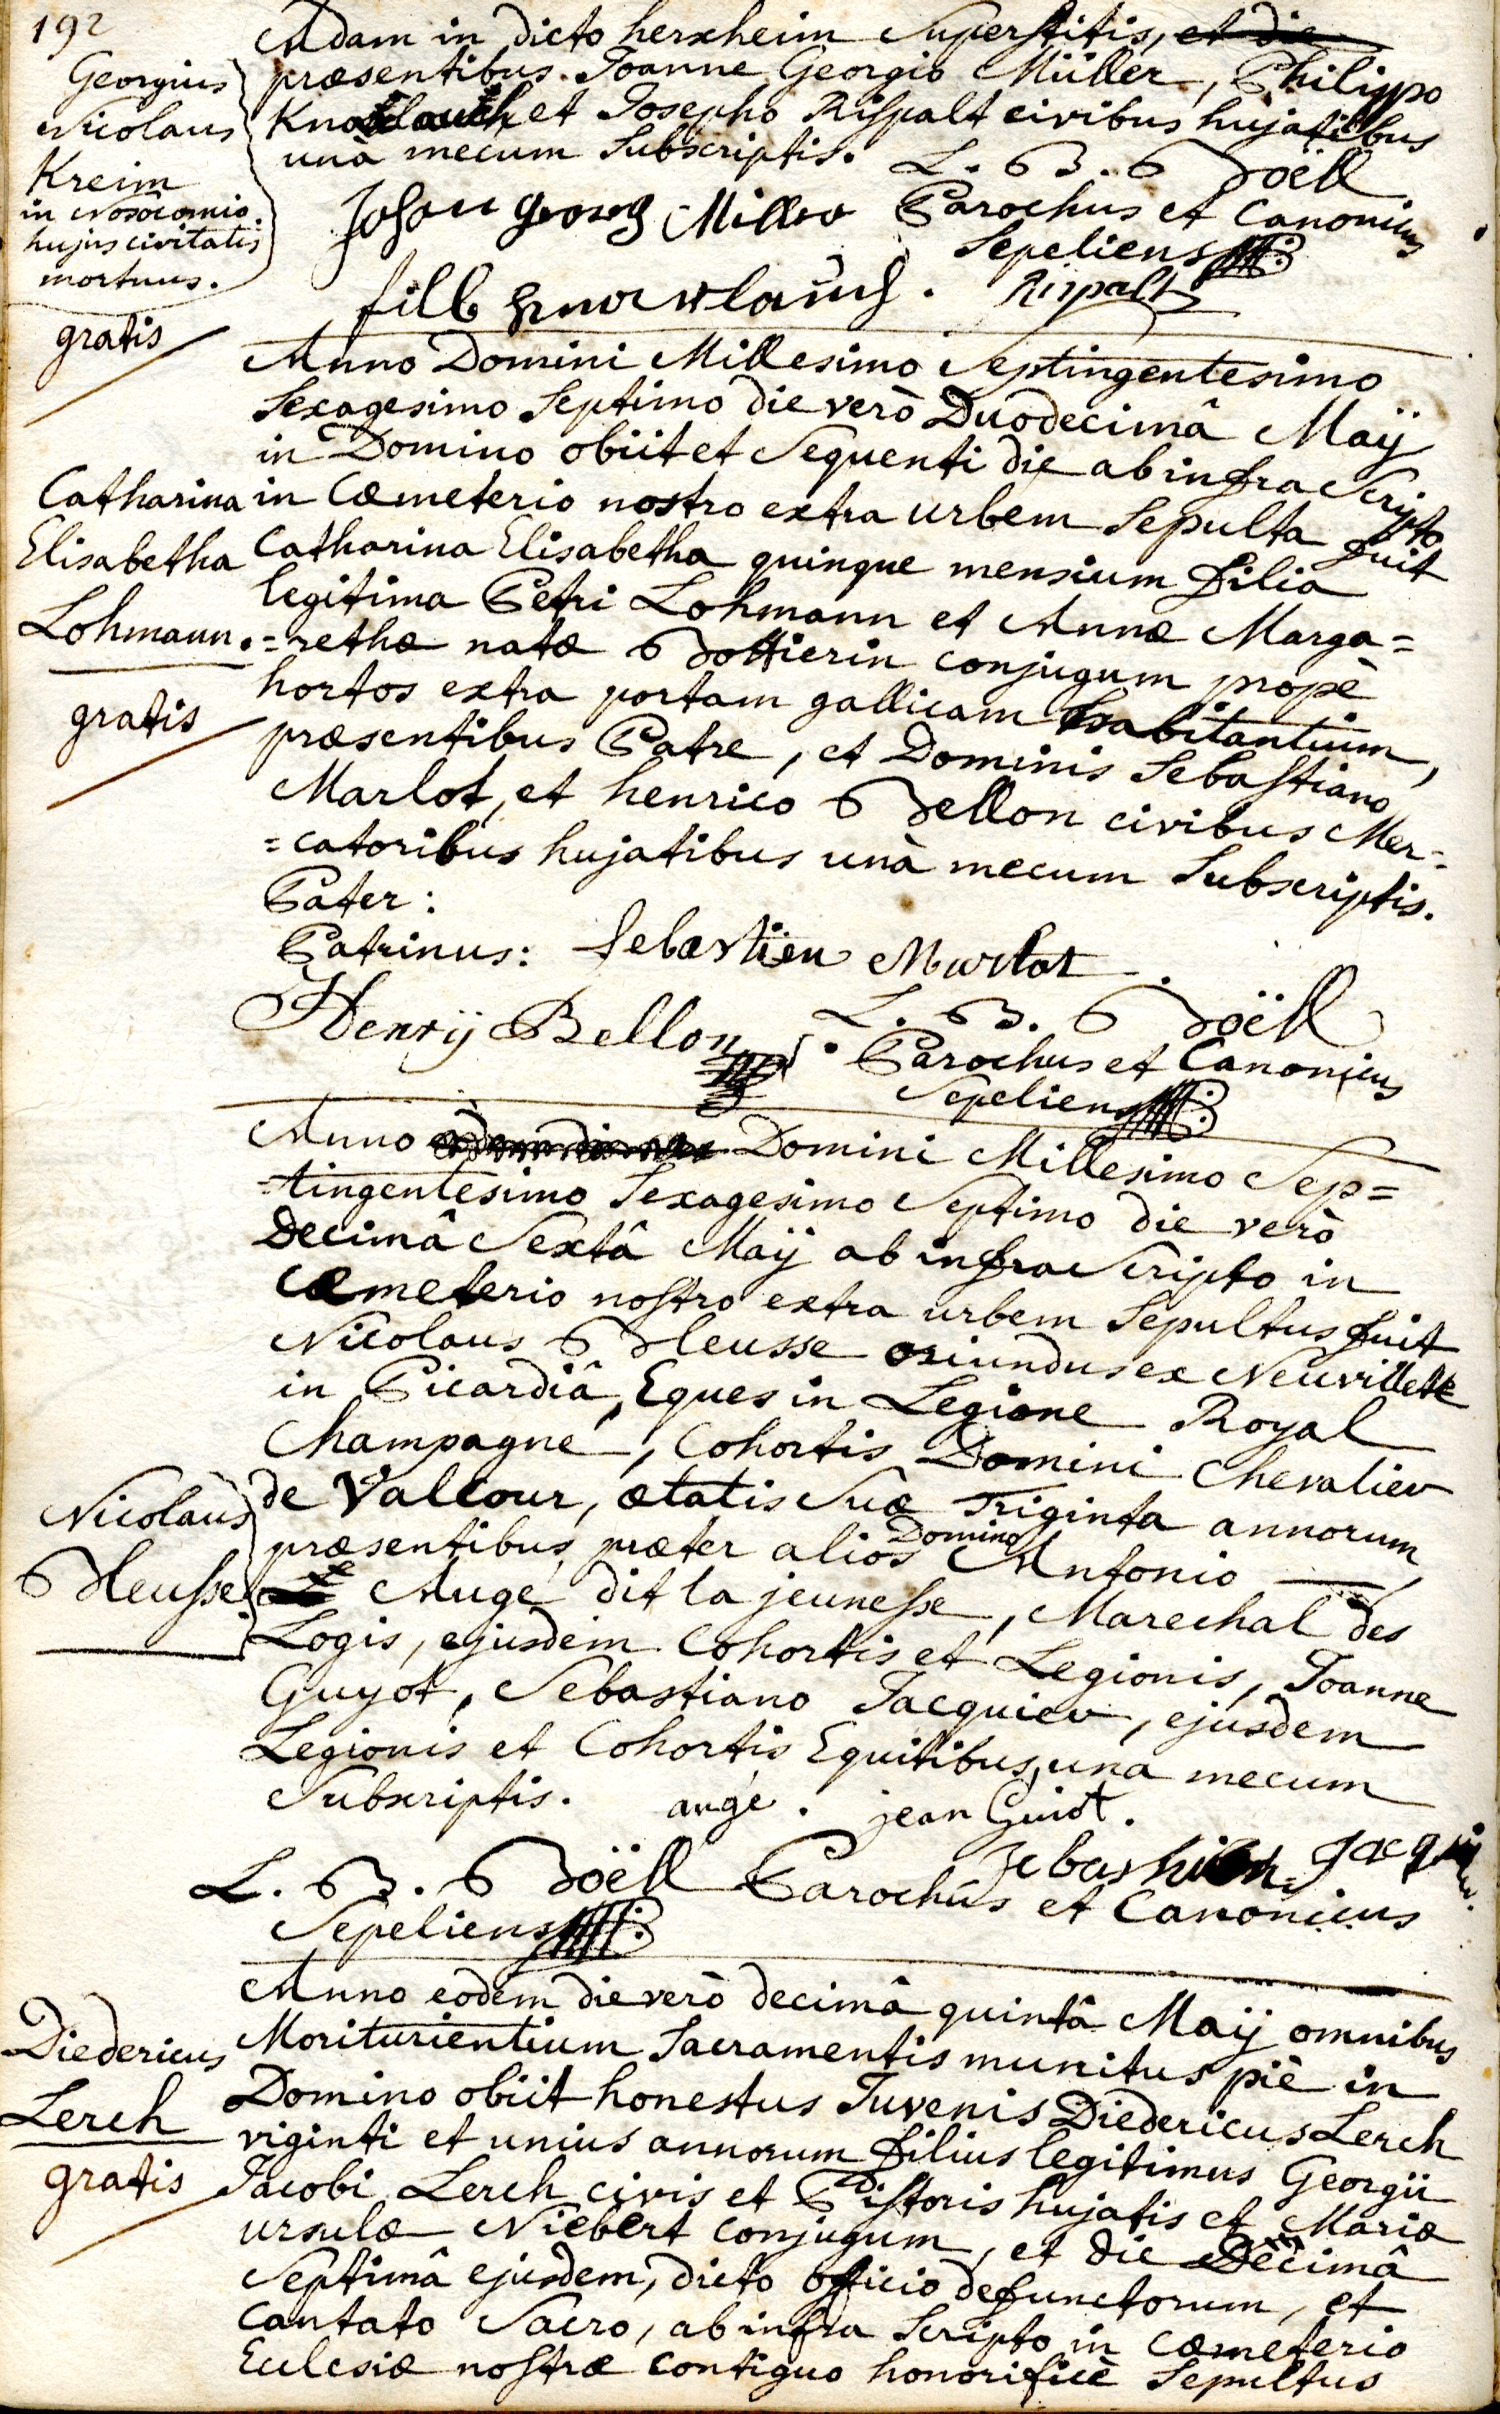 192
Georgius
Nicolaus
Kreim
in Nosocomio
hujus civitatis
mortuus.
gratis
Adam in dicto herxheim Superstitis, et die
præsentibus Joanne Georgio Müller, Philippo
Knoblauch et Josepho Rispalt civibus hujatibus
unà mecum Subscriptis. L. B. Böell
Johan georg Miller Parochus et Canonicus
Sepeliens
filb knoblauch. Rispalt
Anno Domini Millesimo Septingentesimo
Sexagesimo Septimo die verò Duodecimâ Maÿ
in Domino obiit et Sequenti die ab infra Scripto
Catharina
Elisabetha
Lohmann.
gratis
in Cæmeterio nostro extra urbem Sepulta fuit
Catharina Elisabetha quinque mensium filia
legitima Petri Lohmann et Annæ Marga=
=rethæ natæ Bottierin conjugum propè
hortos extra portam gallicam habitantium,
præsentibus Patre, et Dominis Sebastiano
Marlot, et henrico Bellon civibus Mer=
=catoribus hujatibus unà mecum Subscriptis.
Pater:
Patrinus: Sebastien Marlot
Henrÿ Bellon L. B. Böell
Parochus et Canonicus
Sepeliens
Anno Domini Millesimo Sep=
=tingentesimo Sexagesimo Septimo die verò
Decimâ Sextâ Maÿ ab infra Scripto in
Cæmeterio nostro extra urbem Sepultus fuit
Nicolaus Bleusse oriundus ex Neuvillette
in Picardiâ, Eques in Legione Royal
Champagne, Cohortis Domini Chevalier
Nicolaus
Bleusse.
de Valcour, ætatis Suæ Triginta annorum,
præsentibus præter alios Domino Antonio
Augé dit la jeunesse, Marechal des
Logis, ejusdem Cohortis et Legionis, Joanne
Guyot, Sebastiano Jacquier, ejusdem
Legionis et Cohortis Equitibus, una mecum
Subscriptis. augé. jean Guiot.
Sebastien
L. B. Böell Parochus et Canonicus
Sepeliens
Diedericus
Lerch
gratis
Anno eodem die verò decimâ quintâ Maÿ omnibus
Moriturientium Sacramentis munitus piè in
Domino obiit honestus Juvenis Diedericus Lerch
viginti et unius annorum filius legitimus Georgii
Jacobi Lerch civis et Pistoris hujatis et Mariæ
ursulæ Niebert conjugum, et die Decimâ
Septimâ ejusdem, dicto officio defunctorum, et
Cantato Sacro, ab infra Scripto in cæmeterio
Ecclesiæ nostræ contiguo honorificè Sepultus